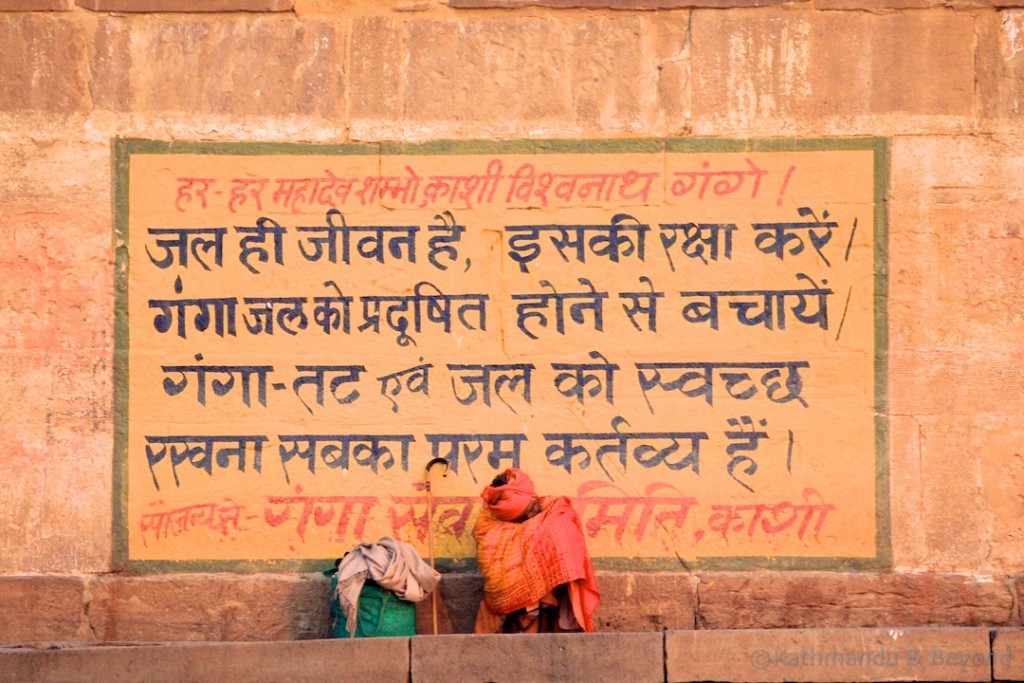 हर-हर महादेव शम्भो काशी विश्वनाथ गंगे !
जल ही जीवन है, इसकी रक्षा करें।
गंगा जल को प्रदूषित होने से बचायें।
गंगा-तट एवं जल को स्वच्छ
रखना सबका परम कर्तव्य हैं।
सौजन्य से- गंगा सेवा मिति, काशी
©Kathmandu & Beyond